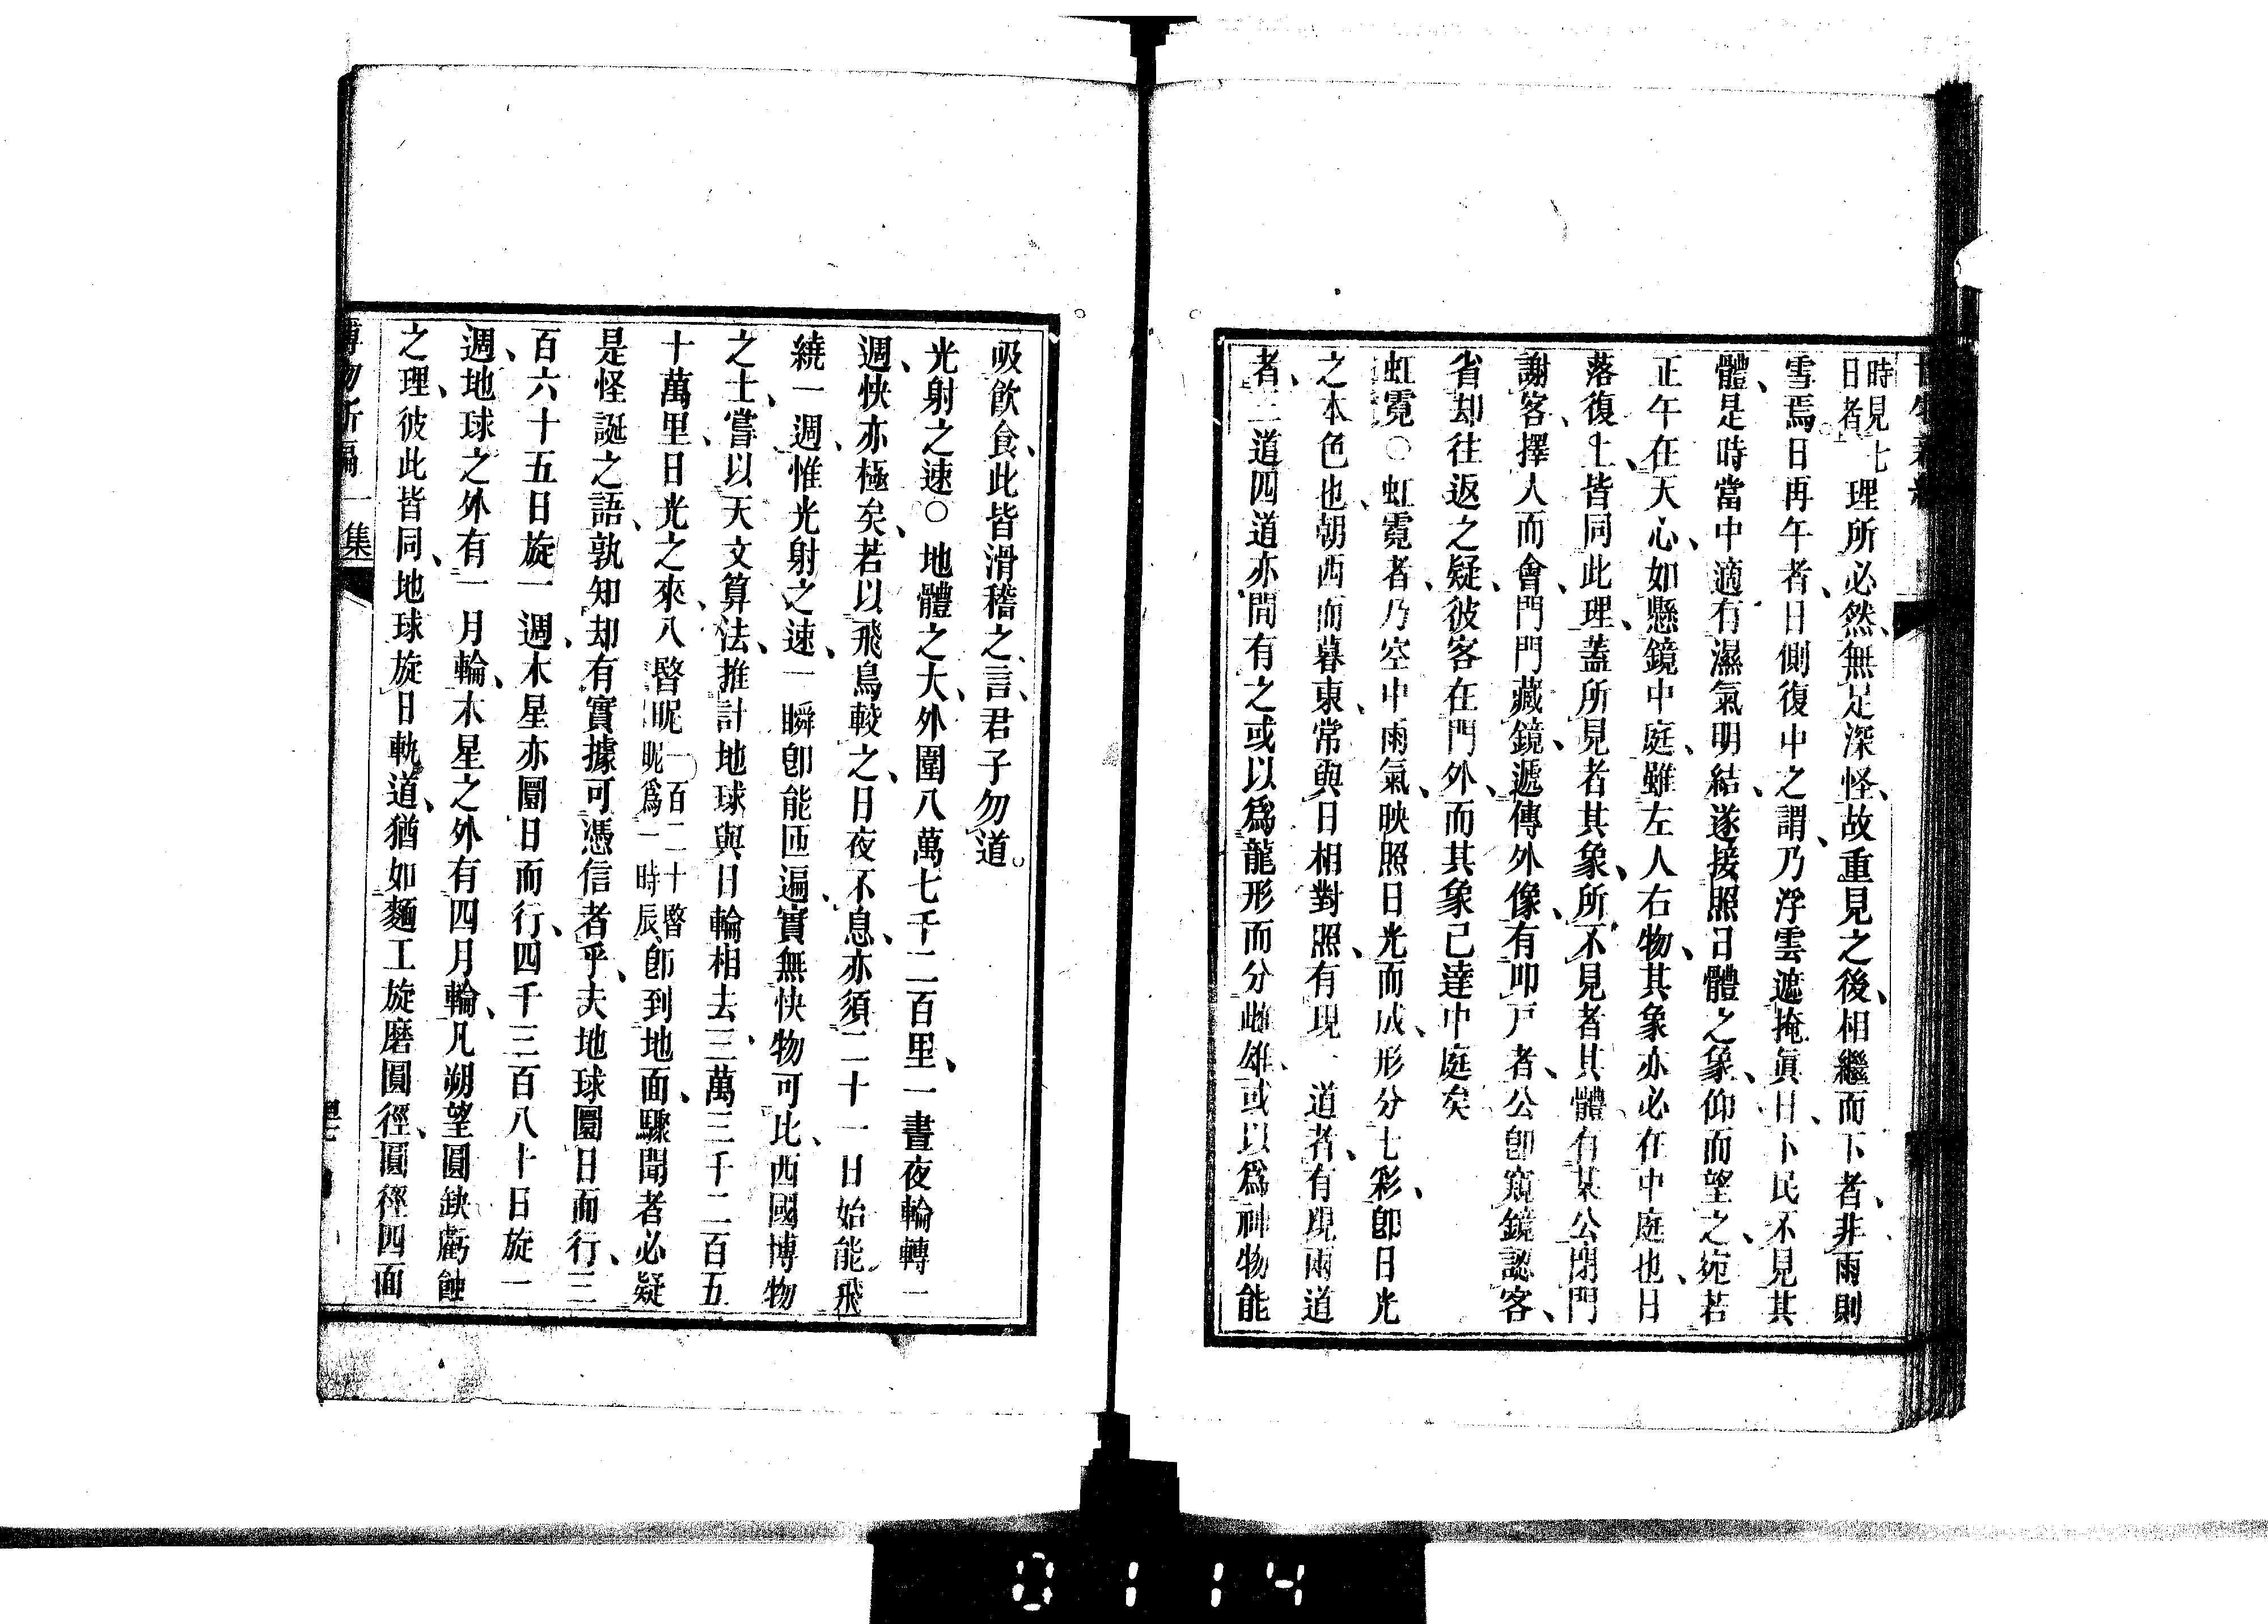 時見七
日者
理所必然、無足深怪、故重見之後、相繼而下者、非雨則
雪焉。日再午者、日側復中之謂、乃浮雲遮掩眞日、下民不見其
體、是時當中適有濕氣明結、遂接照日體之象、仰而望之、宛若
正午在天心、如懸鏡中庭、雖左人右物、其象亦必在中庭也、日
落復上、皆同此理、蓋所見者其象、所不見者其體、有某公閉門
謝客、擇人而會、門門藏鏡、遞傳外像、有叩戸者、公卽窺鏡認客、
省却往返之疑、彼客在門外、而其象已達中庭矣
虹霓○虹霓者、乃空中雨氣、映照日光而成、形分七彩、卽日光
之本色也、朝西而暮東、常與日相對照、有現一道者、有現兩道
者、三道四道亦間有之或以爲龍形而分雌雄、或以爲神物能
吸飮食、此皆滑稽之言、君子勿道。
光射之速○地體之大、外圍八萬七千二百里、一晝夜輪轉一
週、快亦極矣、若以飛鳥較之、日夜不息、亦須二十一日始能飛
繞一週、惟光射之速、一瞬卽能匝遍、實無快物可比、西國博物
之士、嘗以天文算法、推計地球與日輪相去三萬三千二百五
十萬里、日光之來、八晷昵
一百二十晷
昵爲一時辰、
卽到地面、驟聞者必疑
是怪誕之語、孰知却有實據可憑信者乎、夫地球圜日而行、三
百六十五日旋一週、木星亦圜日而行、四千三百八十日旋一
週、地球之外有一月輪、木星之外有四月輪、凡朔望圓缺虧蝕
之理、彼此皆同、地球旋日軌道、猶如麵工旋磨圓徑、圓徑四面
博物新編一集